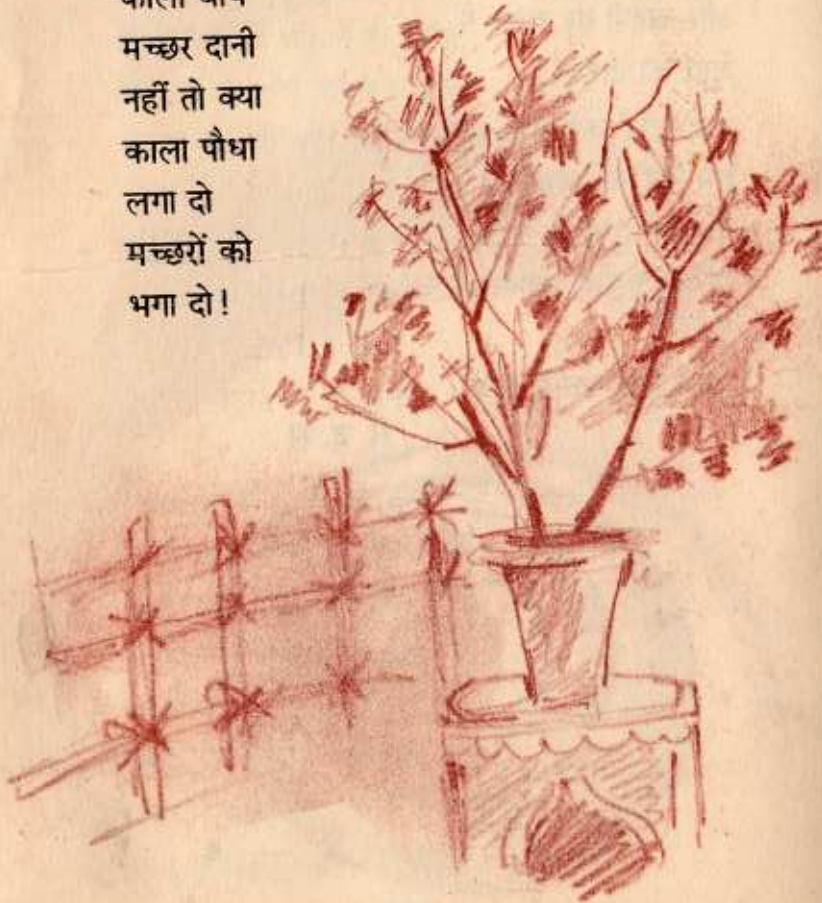 मच्छर दानी
नहीं तो क्या
काला पौधा
लगा दो
मच्छरों को
भगा दो!